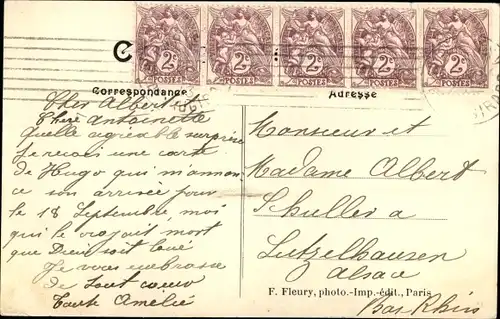 2c 2c 2c 2c 2c
POSTES POSTES POSTES POSTES POSTES
C
Correspondance
Adresse
Cher Albert et
Chère Antoinette
Quelle agréable surprise
Je reçois une carte
de Hugo qui m'annon
ce son arrivée pour
le 18 Septembre, moi
qui le croyait mort
que Dieu soit loué
Je vous embrasse
de tout coeur
Tante Amélie
Monsieur et
Madame Albert
Schuller a
Lutzelhausen
Alsace
Bas Rhin
F. Fleury, photo.-Imp.-édit., Paris